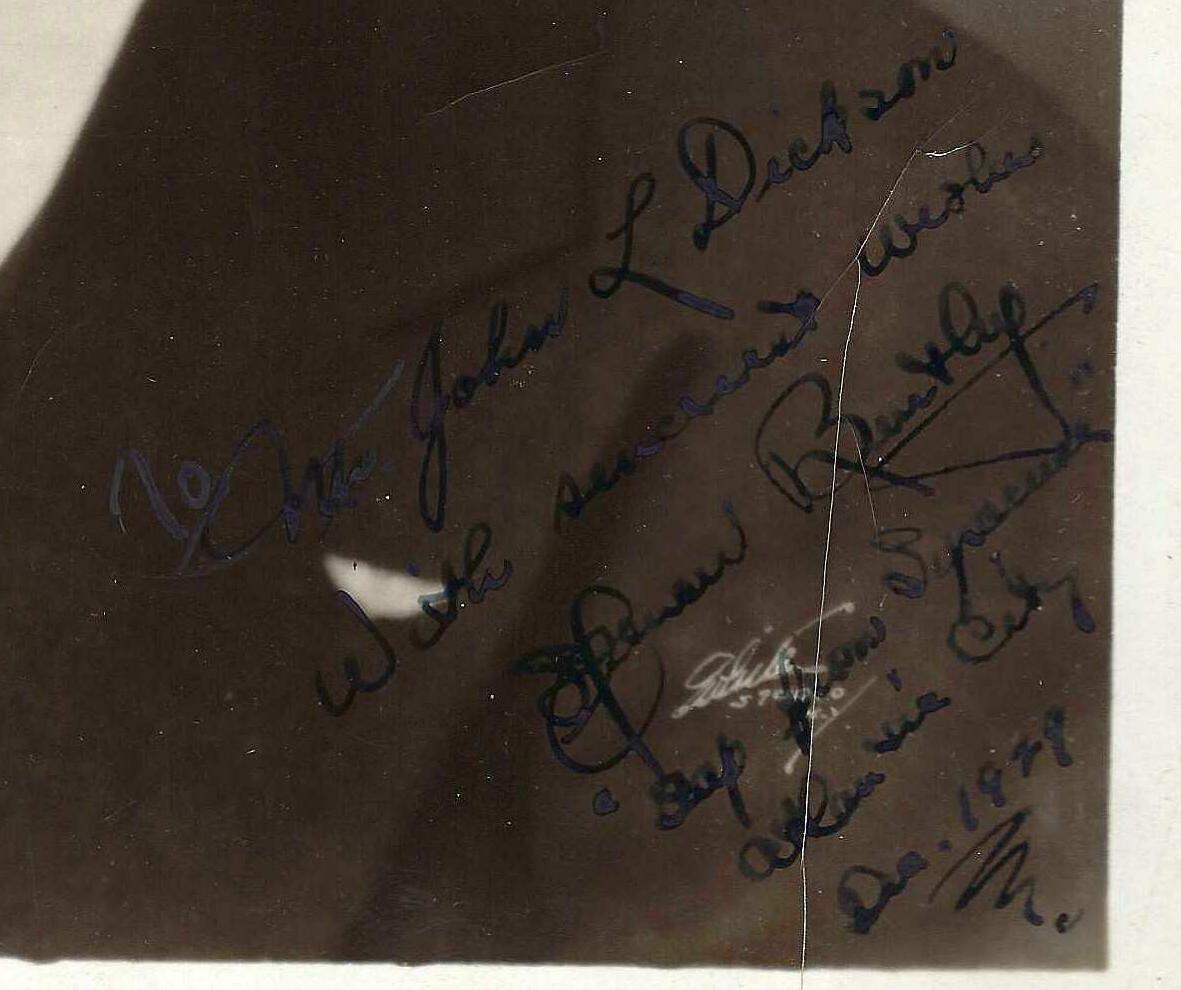 To Mr. John L Dickson
With sincerest wishes
Spencer Bentley
"Gap from Syracuse"
Atlantic City
Dec. 1929
STUDIO